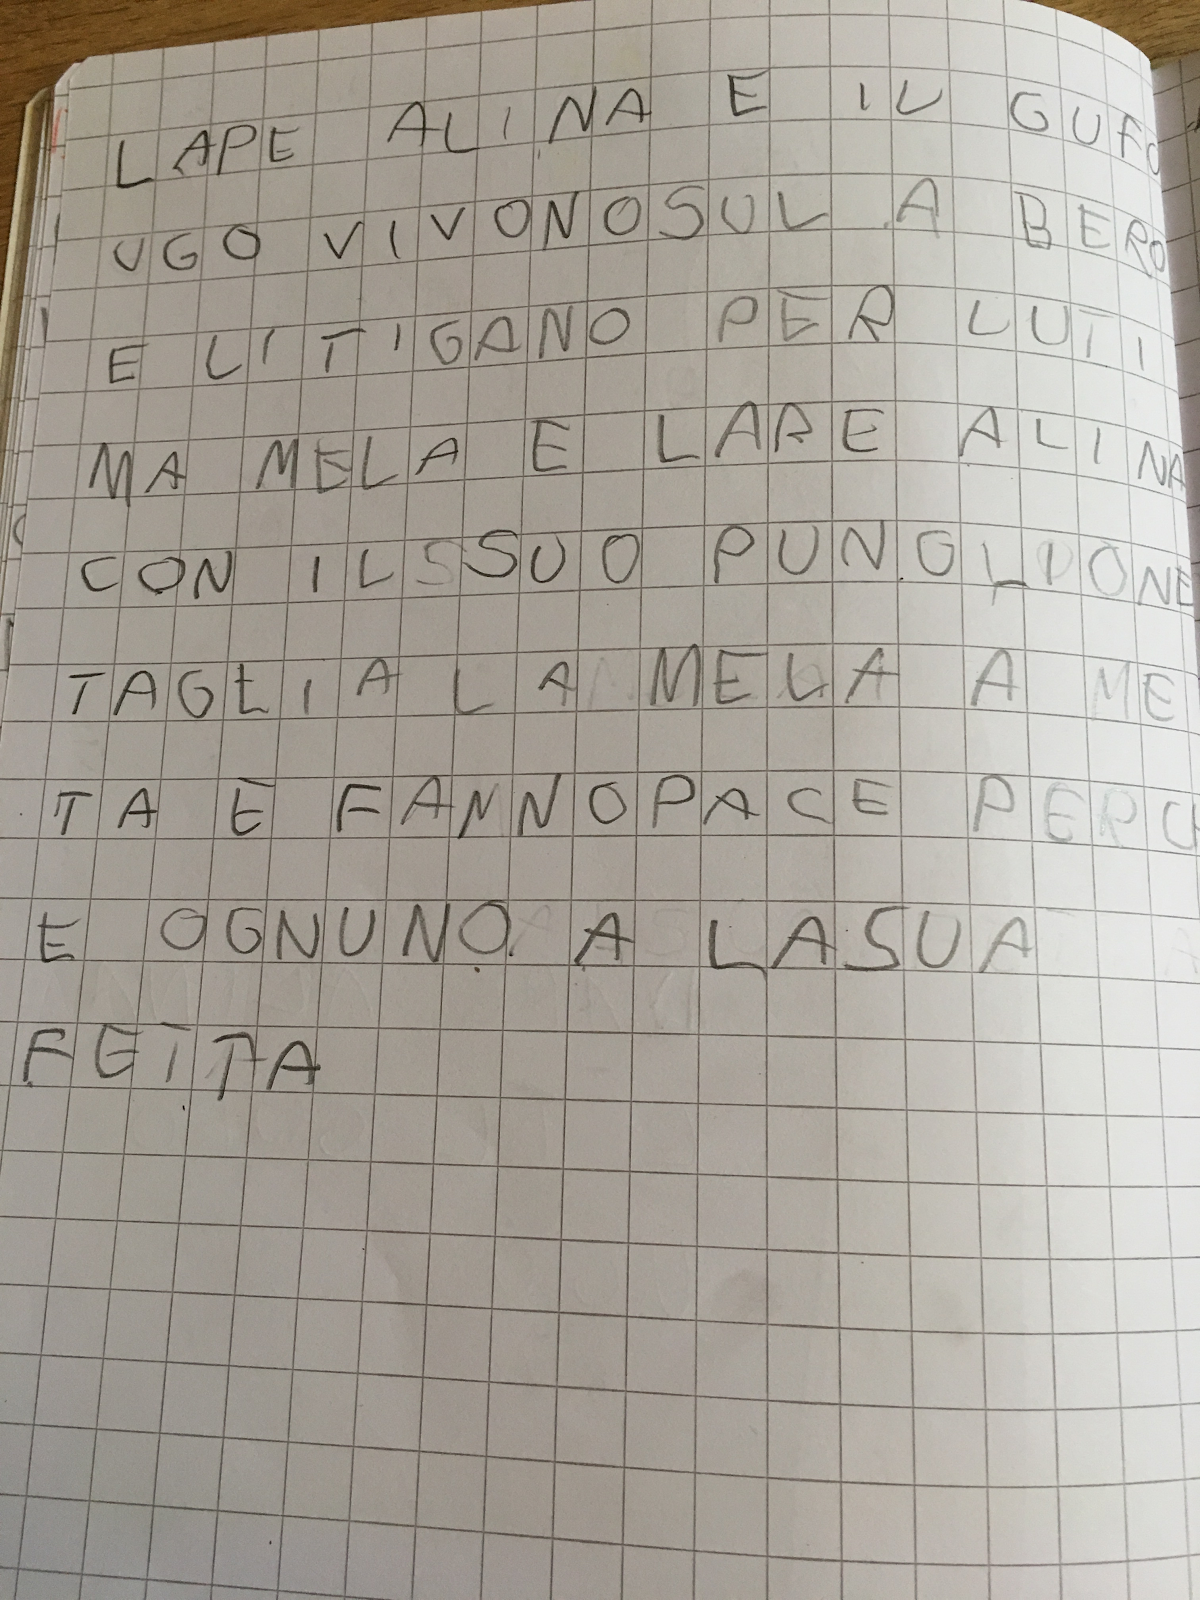 LAPE ALINA E IL GUFO
UGO VIVONOSUL A BERO
E LITIGANO PER LUTI
MA MELA E LAPE ALINA
CON ILSSUO PUNGLIONE
TAGLIA LA MELA A ME
TA E FANNOPACE PERCH
E OGNUNO A LASUA
FETTA